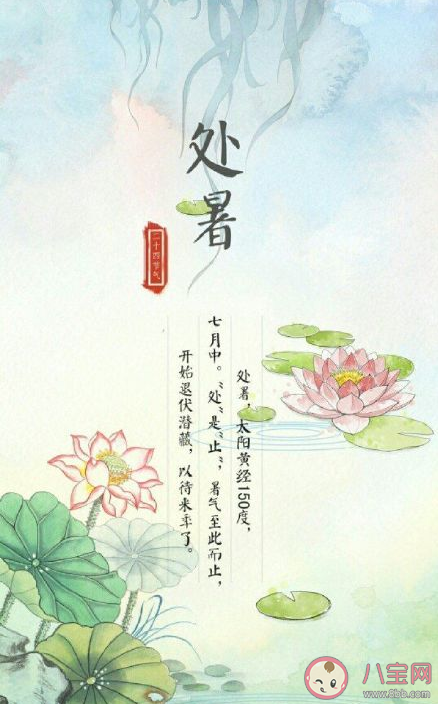 处暑
二十四节气
处暑，太阳黄经150度，
七月中。“处”是“止”，暑气至此而止，
开始退伏潜藏，以待来年了。
八宝网
www.8bb.com